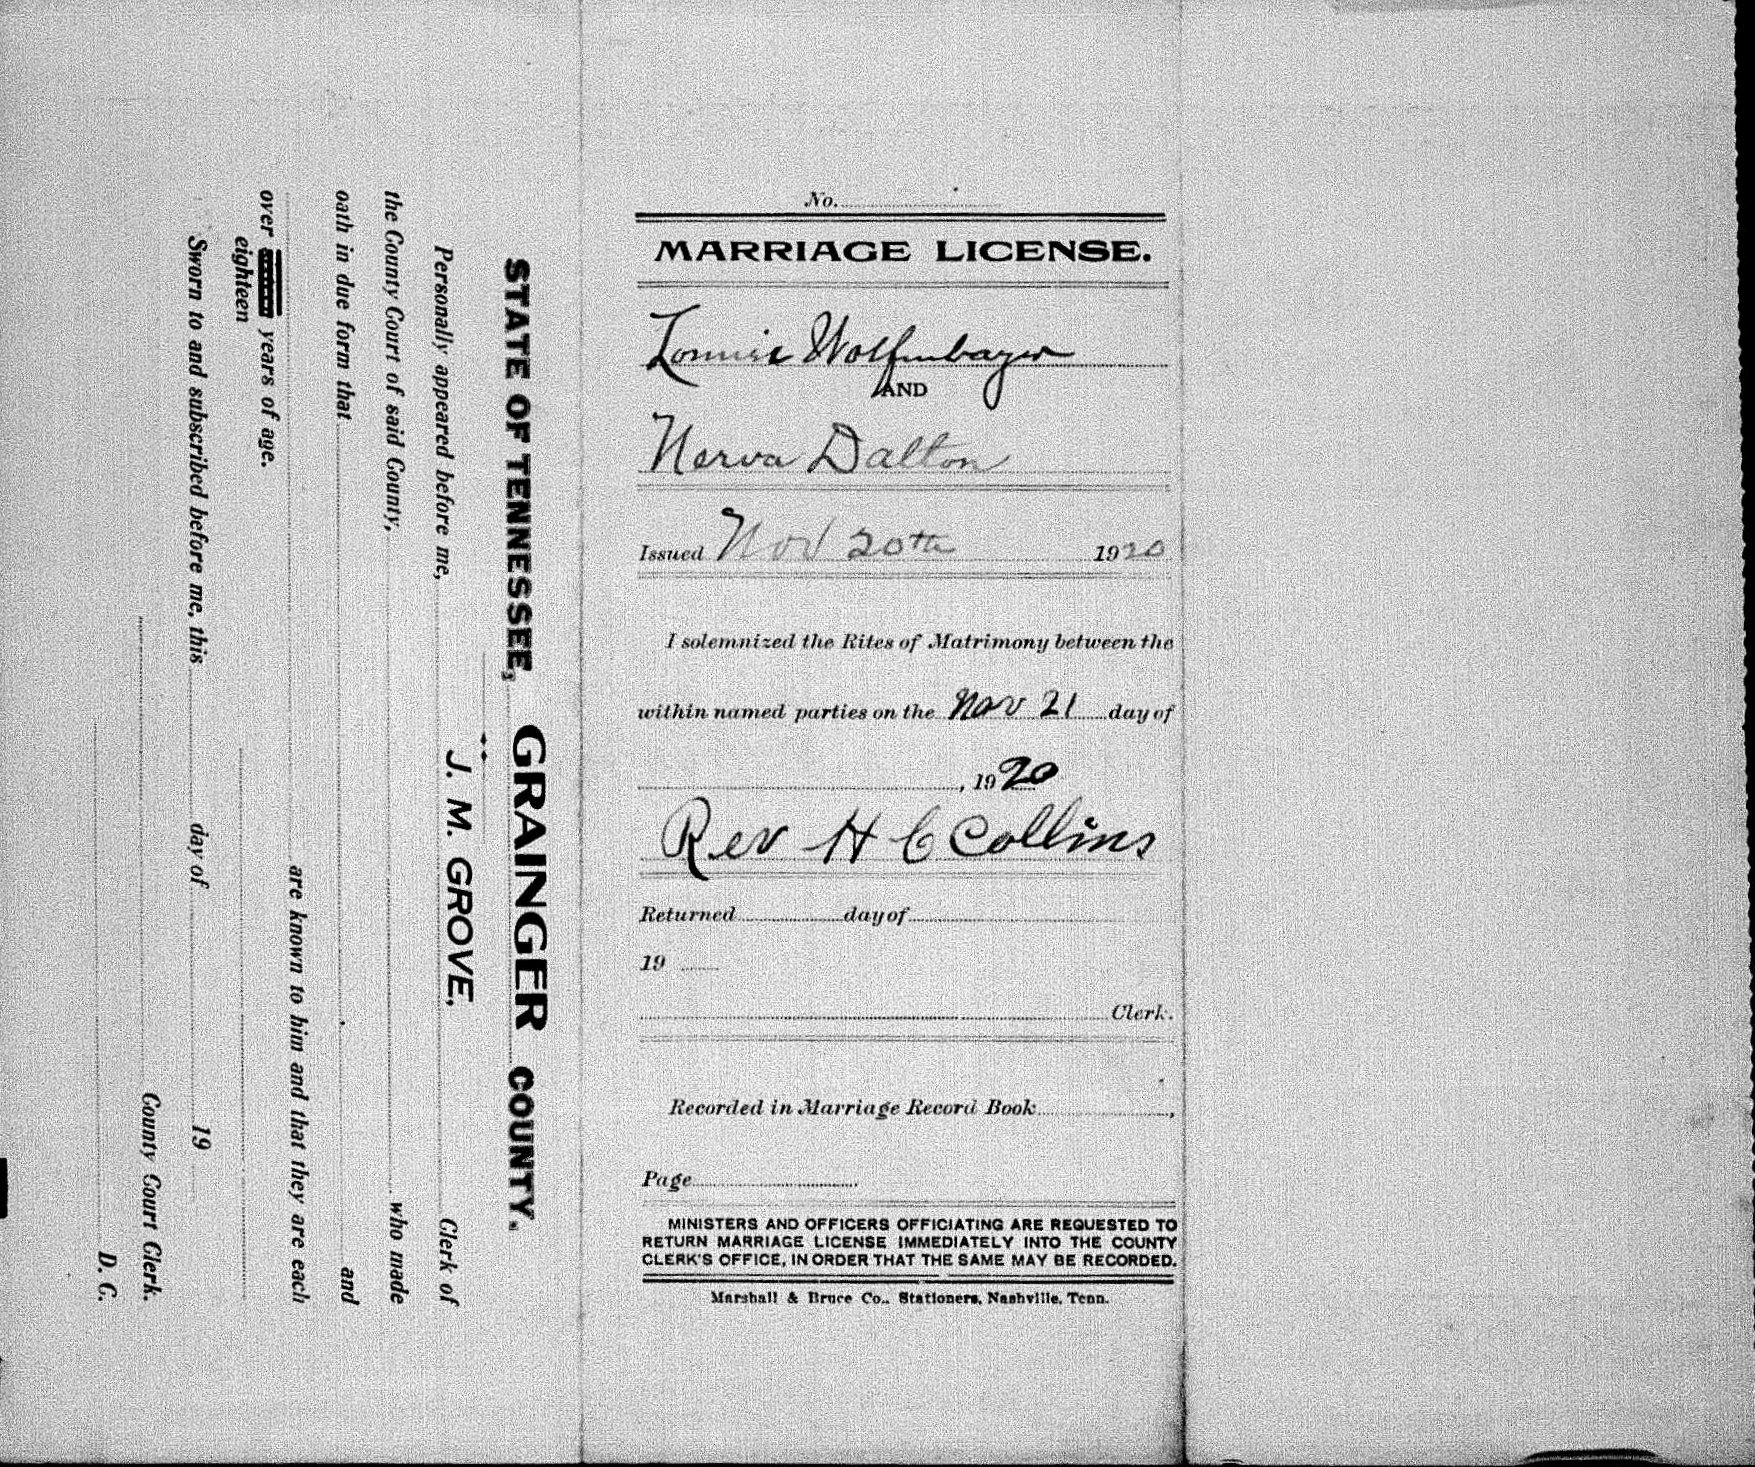 STATE OF TENNESSEE, GRAINGER COUNTY.
Personally appeared before me, J. M. GROVE, Clerk of
the County Court of said County, who made
oath in due form that and
are known to him and that they are each
over years of age.
eighteen
Sworn to and subscribed before me, this day of 19
County Court Clerk.
D. C.
No.
MARRIAGE LICENSE.
Lonnie Wolfenbarger
AND
Nerva Dalton
Issued Nov 20th 1920
I solemnized the Rites of Matrimony between the
within named parties on the Nov 21 day of
, 1920
Rev H C Collins
Returned day of
19
Clerk.
Recorded in Marriage Record Book ,
Page
MINISTERS AND OFFICERS OFFICIATING ARE REQUESTED TO
RETURN MARRIAGE LICENSE IMMEDIATELY INTO THE COUNTY
CLERK'S OFFICE, IN ORDER THAT THE SAME MAY BE RECORDED.
Marshall & Bruce Co., Stationers, Nashville, Tenn.